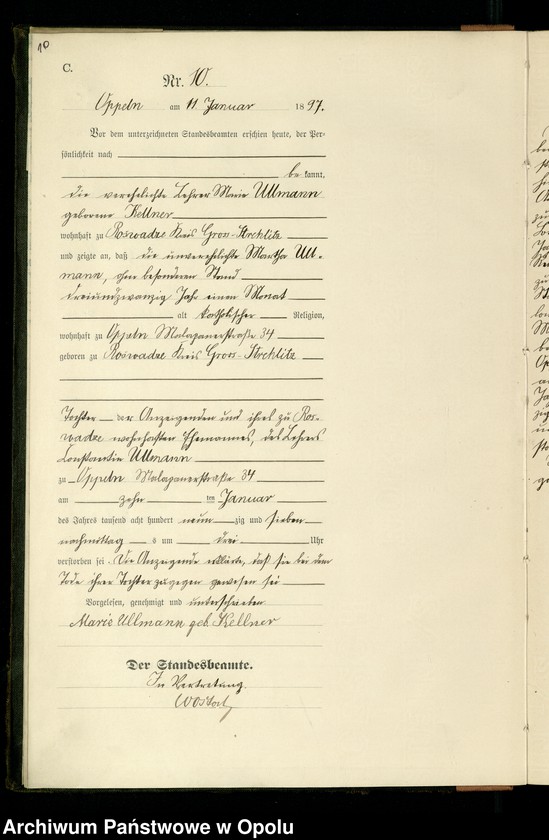 10
C.
Nr. 10.
Oppeln am 11 Januar 1897.
Vor dem unterzeichneten Standesbeamten erschien heute, der Per-
sönlichkeit nach
be kannt,
die verehelichte Lehrer Marie Ullmann
geborene Kellner
wohnhaft zu Roswadze Kreis Gross-Strehlitz
und zeigte an, daß die unverehelichte Martha Ull-
mann, ohne besonderen Stand
dreiundzwanzig Jahr einen Monat
alt katholischer Religion,
wohnhaft zu Oppeln Malapanerstraße 34
geboren zu Roswadze Kreis Gross-Strehlitz
Tochter der Anzeigenden und ihres zu Ros-
wadze wohnhaften Ehemannes, des Lehrers
Constantin Ullmann
zu Oppeln Malapanerstraße 34
am zehn ten Januar
des Jahres tausend acht hundert neun zig und sieben
nachmittag s um drei Uhr
verstorben sei. Die Anzeigende erklärte, daß sie bei dem
Tode ihrer Tochter zugegen gewesen sei
Vorgelesen, genehmigt und unterschrieben
Marie Ullmann geb. Kellner
Der Standesbeamte.
In Vertretung.
Archiwum Państwowe w Opolu